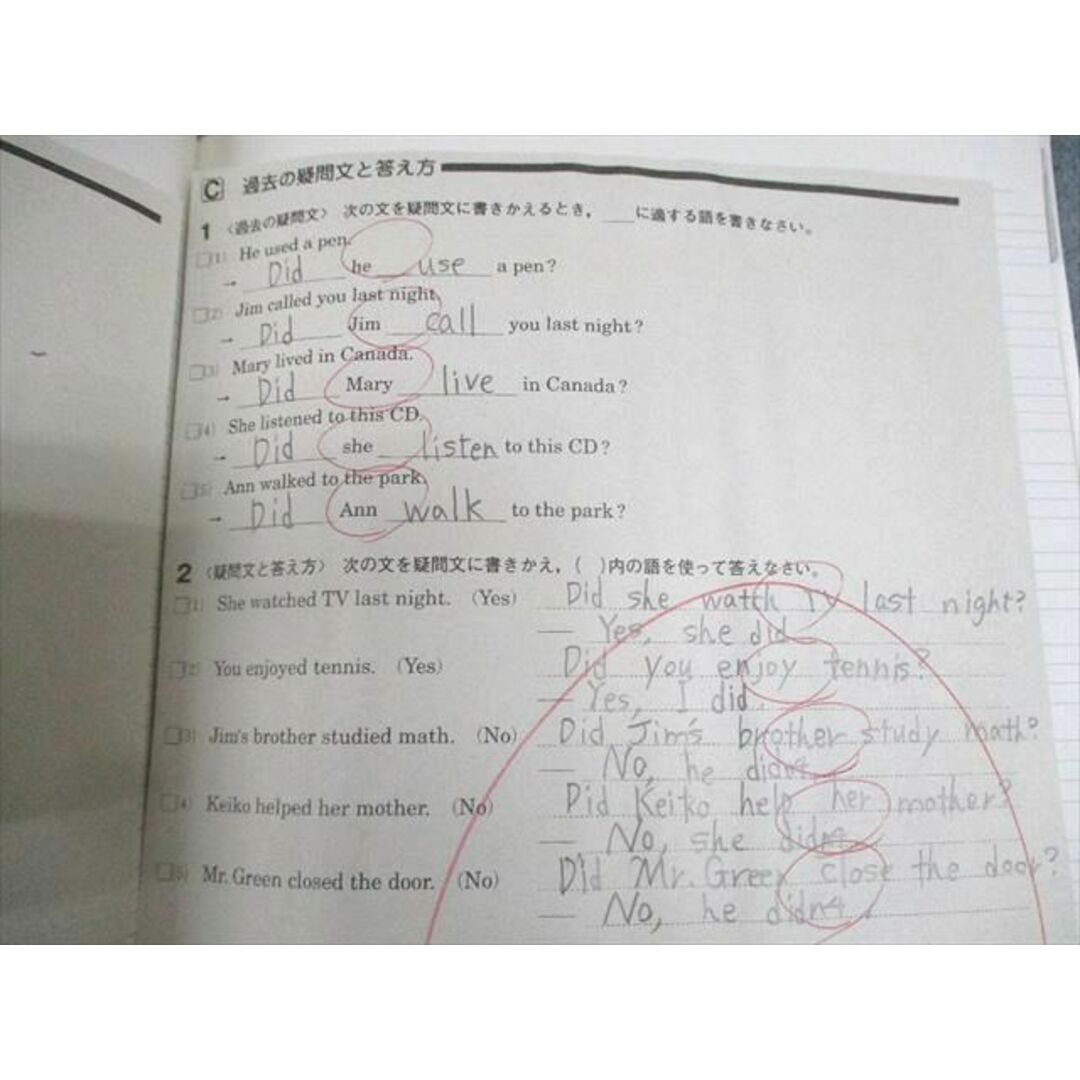 C 過去の疑問文と答え方
1 〈過去の疑問文〉 次の文を疑問文に書きかえるとき，___に適する語を書きなさい。
□(1) He used a pen.
→ Did he use a pen?
□(2) Jim called you last night.
→ Did Jim call you last night?
□(3) Mary lived in Canada.
→ Did Mary live in Canada?
□(4) She listened to this CD.
→ Did she listen to this CD?
□(5) Ann walked to the park.
→ Did Ann walk to the park?
2 〈疑問文と答え方〉 次の文を疑問文に書きかえ，( )内の語を使って答えなさい。
□(1) She watched TV last night. (Yes) Did she watch TV last night?
— Yes, she did.
□(2) You enjoyed tennis. (Yes) Did you enjoy tennis?
— Yes, I did.
□(3) Jim's brother studied math. (No) Did Jim's brother study math?
— No, he didn't.
□(4) Keiko helped her mother. (No) Did Keiko help her mother?
— No, she didn't.
□(5) Mr. Green closed the door. (No) Did Mr. Green close the door?
— No, he didn't.